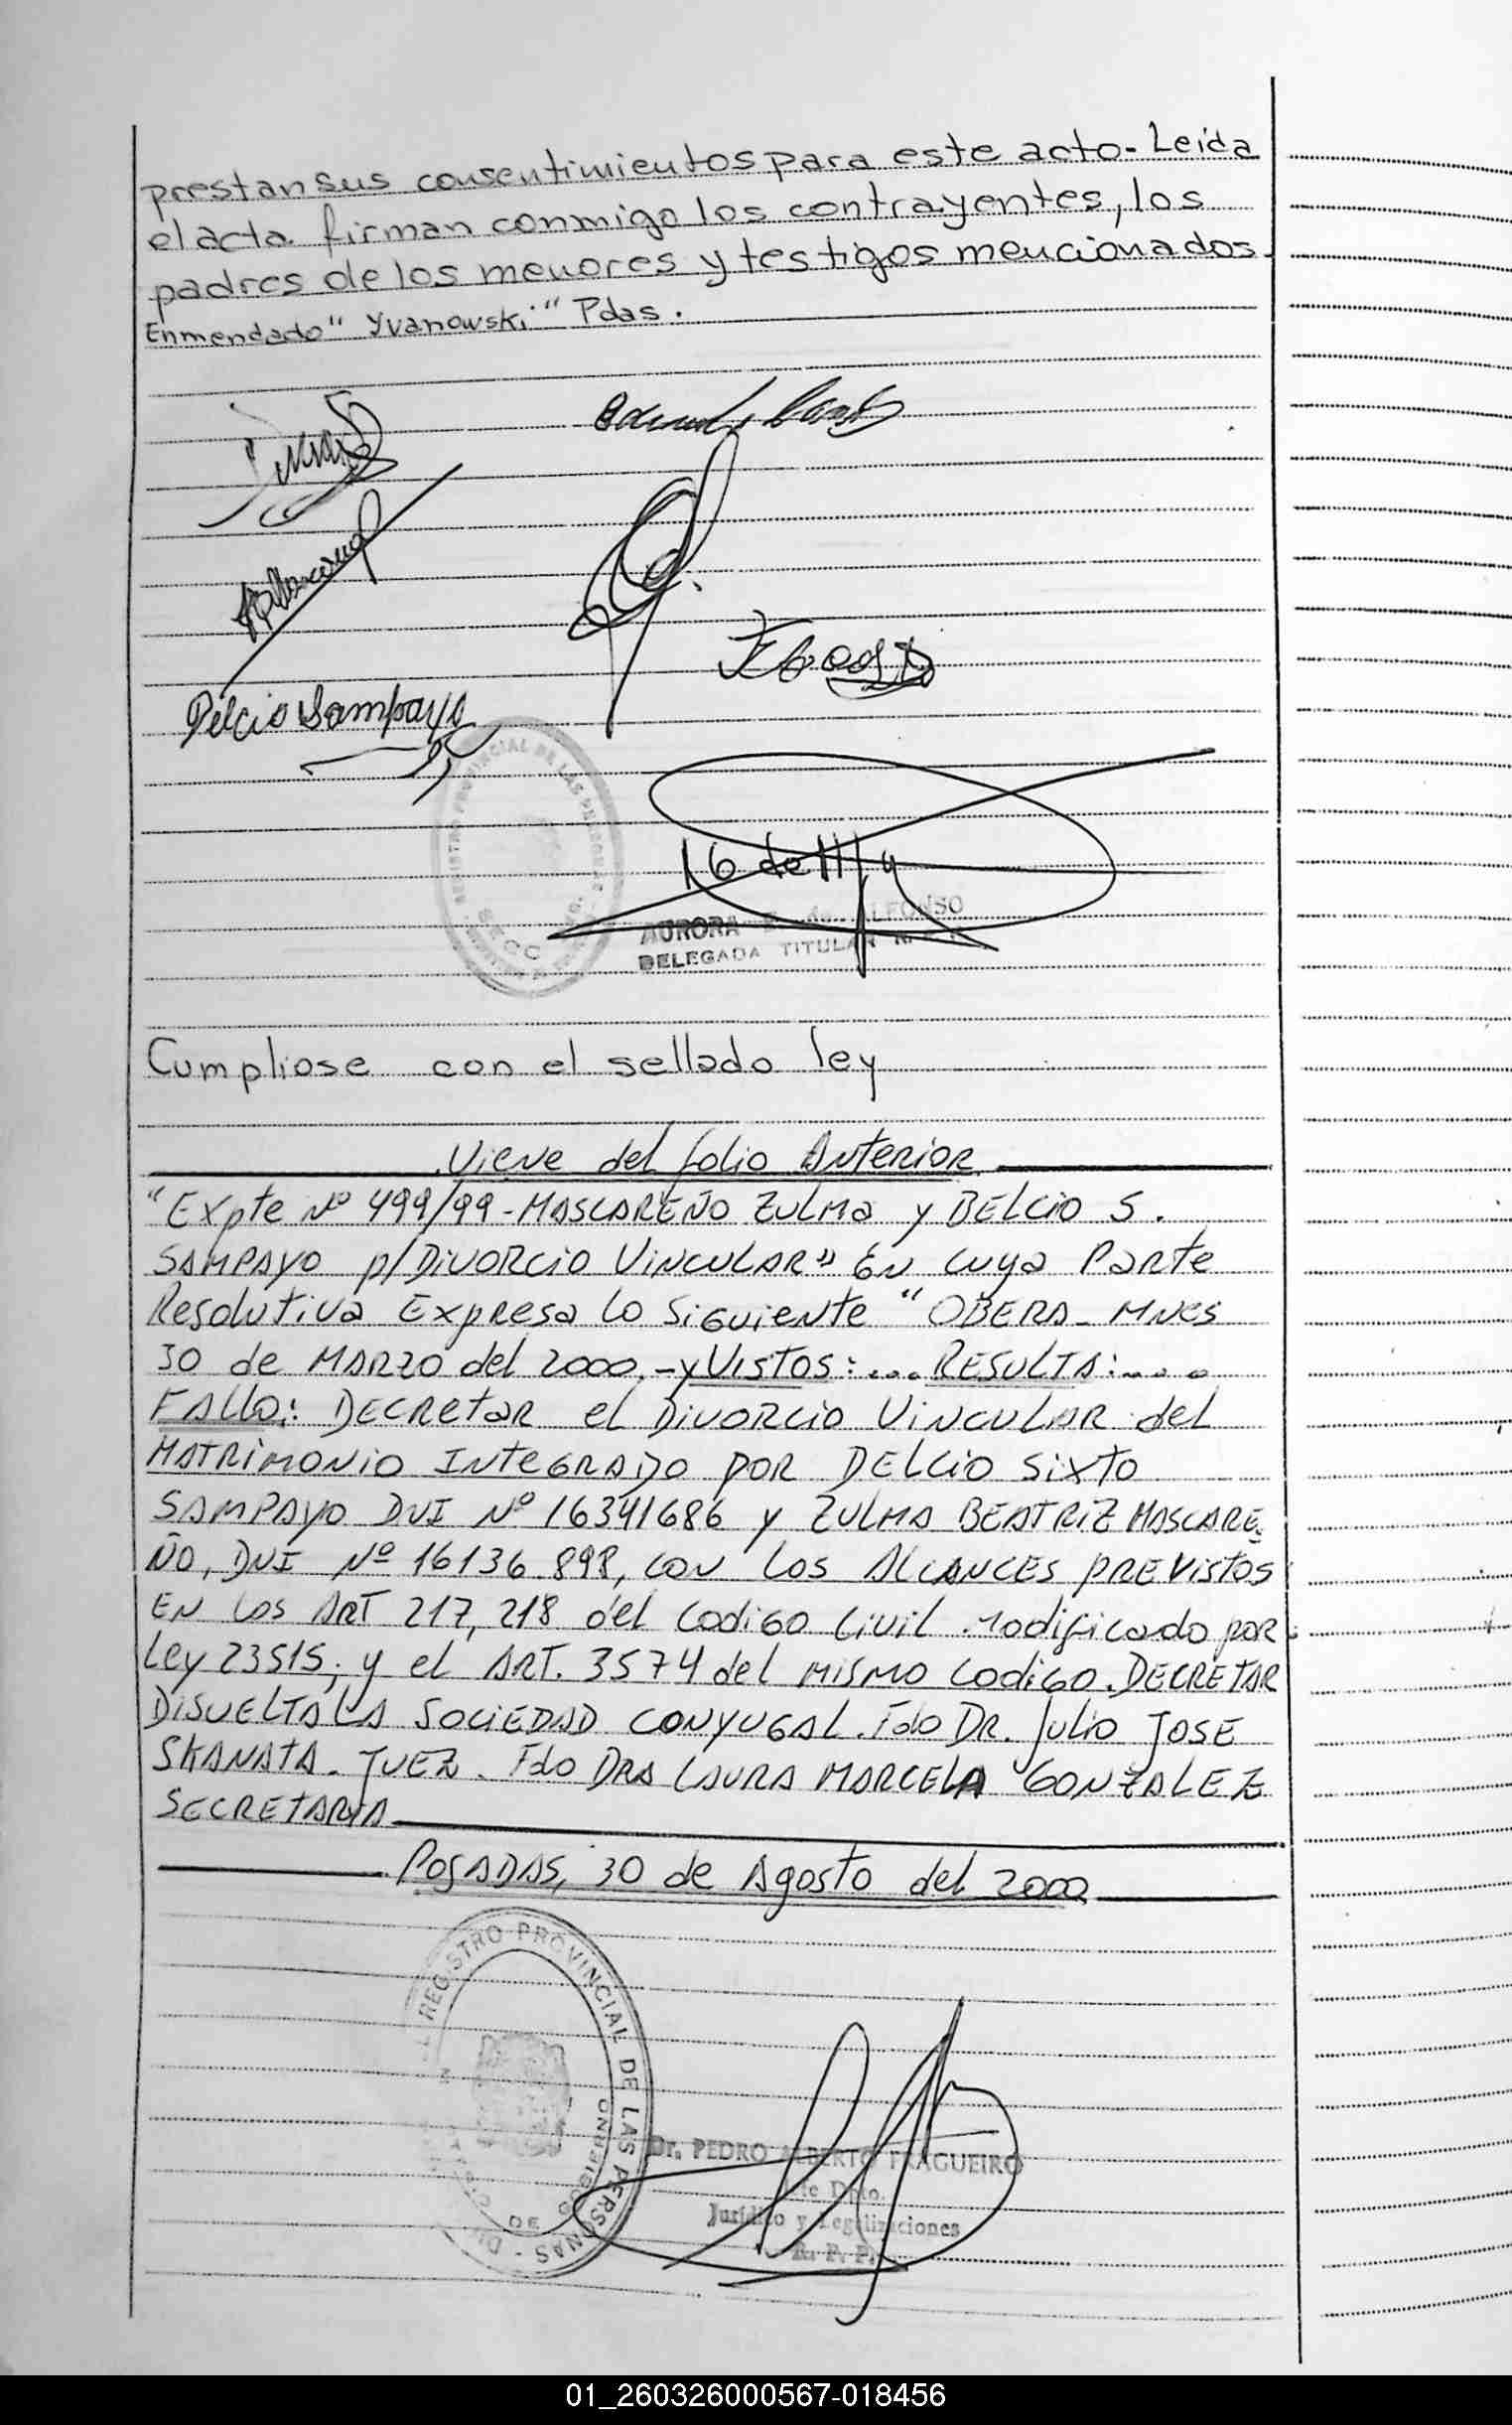 prestan sus consentimientos para este acto- Leída
el acta firman conmigo los contrayentes, los
padres de los menores y testigos mencionados.
Enmendado "Yvanowski" Pdas.
Delcio Sampayo
REGISTRO PROVINCIAL DE LAS PERSONAS
AURORA ALFONSO
DELEGADA TITULAR
Cumpliose con el sellado ley
Viene del folio Anterior
"Expte Nº 499/99-MASCAREÑO ZULMA y BELCIO S.
SAMPAYO p/DIVORCIO VINCULAR" En cuya Parte
Resolutiva Expresa lo Siguiente "OBERA- MNES
30 de MARZO del 2000.-y VISTOS:... RESULTA:....
FALLO: DECRETAR el DIVORCIO VINCULAR del
MATRIMONIO INTEGRADO POR DELCIO SIXTO
SAMPAYO DNI Nº 16341686 y ZULMA BEATRIZ MASCARE-
ÑO, DNI Nº 16136.898, con los ALCANCES PREVISTOS
EN los ART 217, 218 del CODIGO CIVIL modificado por
Ley 23515; y el ART. 3574 del MISMO CODIGO. DECRETAR
DISUELTA LA SOCIEDAD CONYUGAL. Fdo DR. Julio JOSE
SKANATA. JUEZ. Fdo DRA LAURA MARCELA GONZALEZ
SECRETARIA
POSADAS, 30 de Agosto del 2000
REGISTRO PROVINCIAL DE LAS PERSONAS
Dr. PEDRO ALBERTO FRAGUEIRO
Jfe Dpto.
Jurídico y Legalizaciones
R. P. P.
01_260326000567-018456